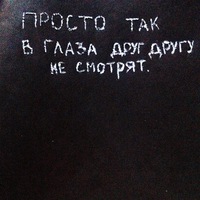 ПРОСТО ТАК
В ГЛАЗА ДРУГ ДРУГУ
НЕ СМОТРЯТ.